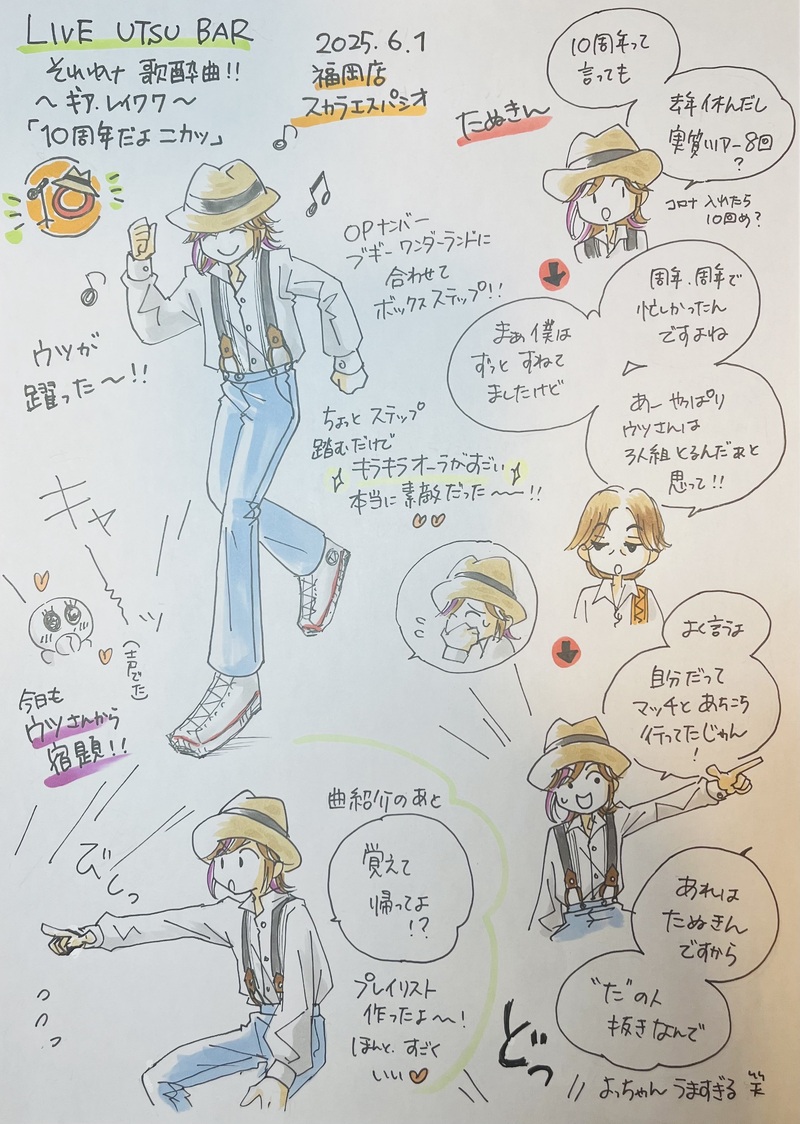 LIVE UTSU BAR
それゆけ歌酔曲!!
〜ギア.レイワ7〜
「10周年だよ ニカッ」
2025.6.1
福岡店
スカラエスパシオ
ウツが
躍った〜!!
OPナンバー
ブギーワンダーランドに
合わせて
ボックスステップ!!
ちょっと ステップ
踏むだけで
キラキラオーラがすごい
本当に素敵だった〜〜!!
キャーッ
(声でた)
今日も
ウツさんから
宿題!!
びしっ
曲紹介のあと
覚えて
帰ってよ
!?
プレイリスト
作ったよ〜!
ほんと、すごく
いい
たぬきん
10周年って
言っても
去年休んだし
実質ツアー8回
?
コロナ 入れたら
10回め?
周年.周年で
忙しかったん
ですよね
まぁ僕は
ずっと すねて
ましたけど
あー やっぱり
ウツさんは
3人組とるんだぁと
思って!!
よく言うよ
自分だって
マッチと あちこち
行ってたじゃん
!
あれは
たぬきん
ですから
"だ"の人
抜きなんで
どっ
よっちゃん うますぎる 笑